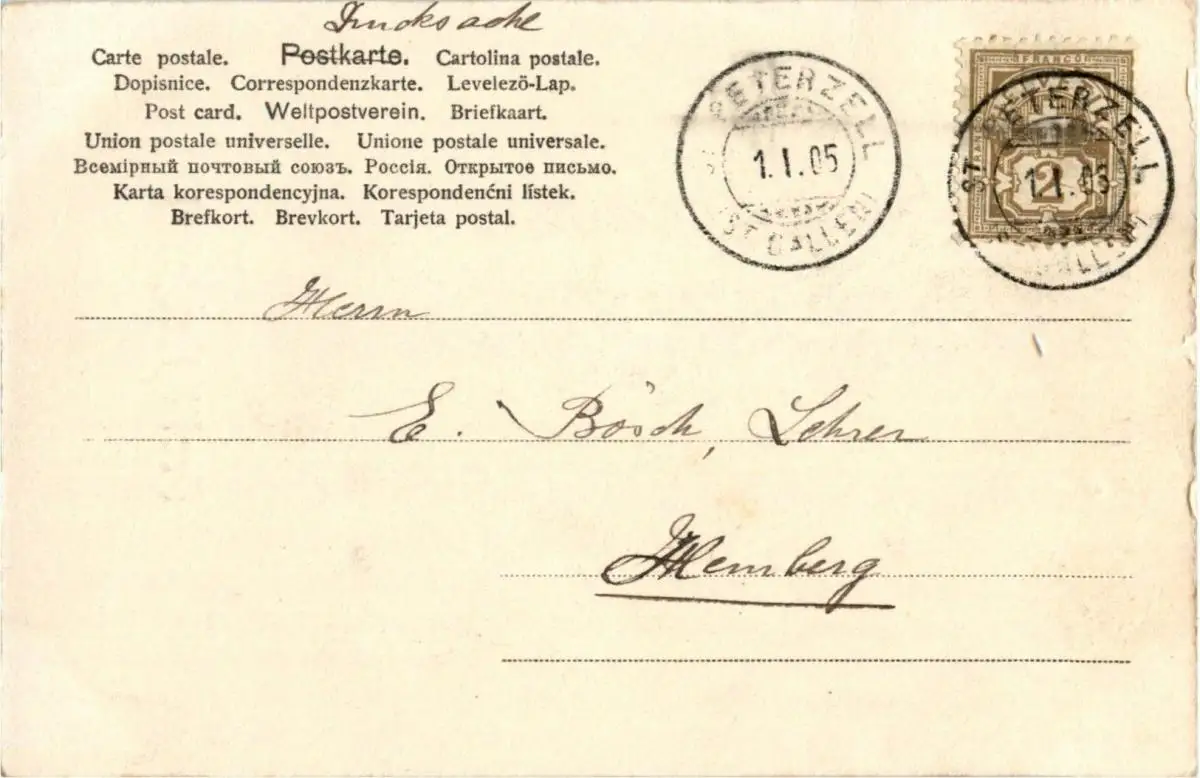 Drucksache
Carte postale. Postkarte. Cartolina postale.
Dopisnice. Correspondenzkarte. Levelezö-Lap.
Post card. Weltpostverein. Briefkaart.
Union postale universelle. Unione postale universale.
Всемірный почтовый союзъ. Россія. Открытое письмо.
Karta korespondencyjna. Korespondenćni lístek.
Brefkort. Brevkort. Tarjeta postal.
ST. PETERZELL
1.I.05
(ST. GALLEN)
FRANCO
HELVETIA
2
ST. PETERZELL
1.I.05
(ST. GALLEN)
Herrn
E. Bösch, Lehrer
Hemberg